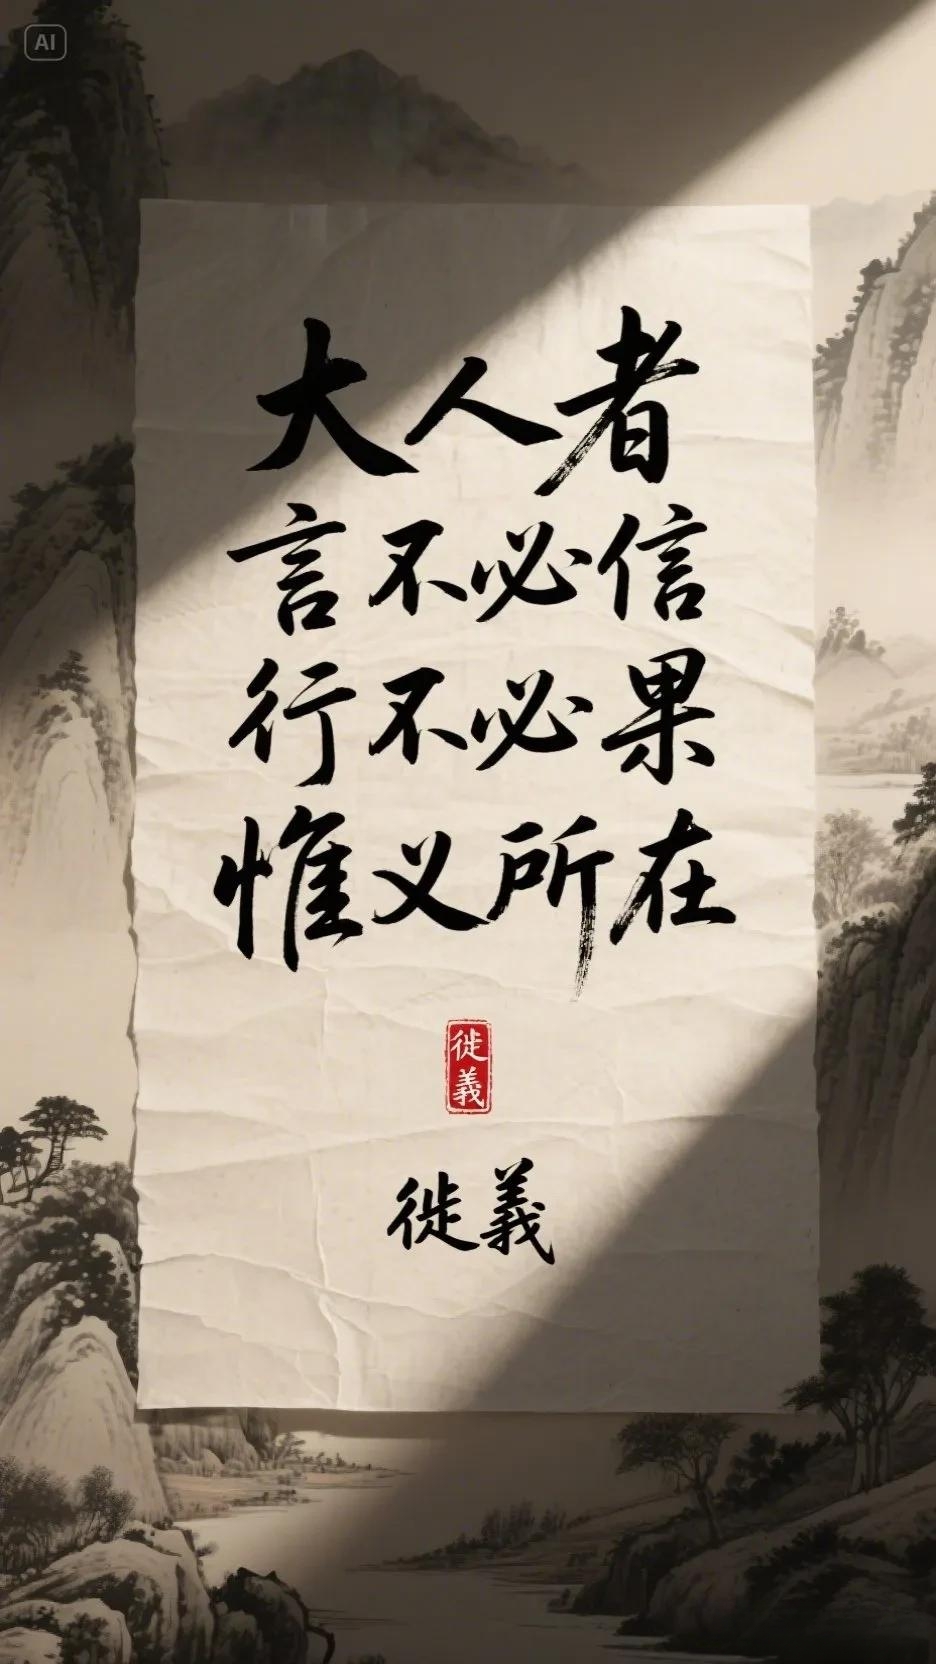 AI
大人者
言不必信
行不必果
惟义所在
徙義
徙義